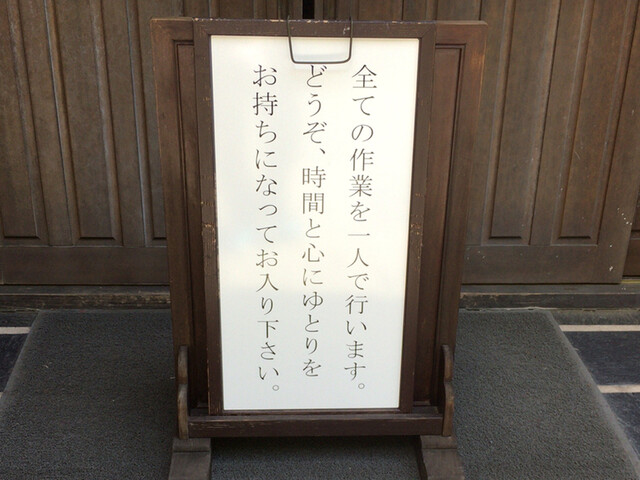 全ての作業を一人で行います。
どうぞ、時間と心にゆとりを
お持ちになってお入り下さい。